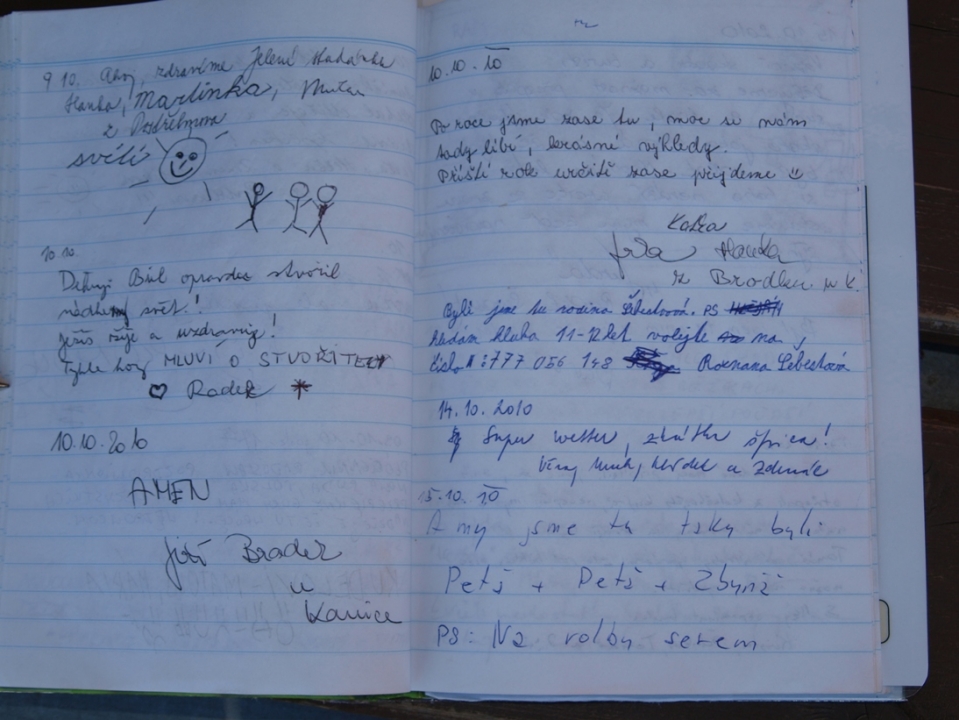 9 10. Ahoj, zdravíme Jelení
Hanka, Martinka,
z
svítí
10.10.
Děkuji Bůh opravdu stvořil
nádherný svět!
Ježíš žije a uzdravuje!
Tyhle hory MLUVÍ O STVOŘITELI
Radek
10.10.2010
AMEN
Jiří Bradek
u
Kamice
10.10.10
Po roce jsme zase tu, moc se nám
tady líbí, krásné výhledy.
Příští rok určitě zase přijdeme
Katka
Hanka
z Brodku u K.
Byli jsme tu rodina Šebestová. PS
hledám kluka 11-12 let volejte na
číslo: 777 056 148 Roxnana Šebestová
14.10.2010
Super wetter, zkrátka špica!
a Zdeněk
15.10.10
A my jsme tu taky byli
Petš + Petš + Zbyněk
PS: Na volby serem